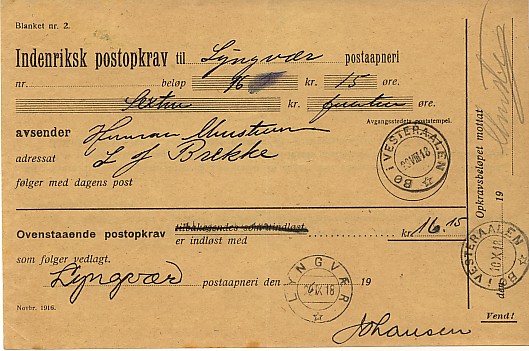 Blanket nr. 2.
Indenriksk postopkrav til Lyngvær postaapneri
nr. beløp 16 kr. 15 øre.
kr. femten øre.
Avgangsstedets poststempel.
avsender Herman
adressat L Brekke
følger med dagens post
BØ I VESTERAALEN
Ovenstaaende postopkrav tilbakesendes som uindløst
er indløst med kr 16.15
som følger vedlagt.
Lyngvær postaapneri den 19
LYNGVÆR
Novbr. 1916.
Johansen
Opkravsbeløpet mottat
den 19
BØ I VESTERAALEN
10 X 18
Vend!